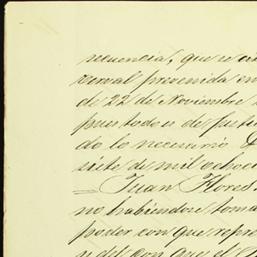 secuencia, que se
versal prevenida en
de 22 de Noviembre
puestado es de
do lo necesario
siete de mil ochoci
= Juan Flores
no habiendose toma
poder con que repre
con que el